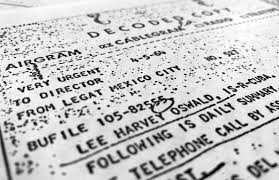 DECODED COPY
AIRGRAM
CABLEGRAM
VERY URGENT 4-5-64 NO. 527
TO DIRECTOR
FROM LEGAT MEXICO CITY
BUFILE 105-82555
LEE HARVEY OSWALD, IS-R-CUBA
FOLLOWING IS DAILY SUMMARY.
TELEPHONE CALL BY